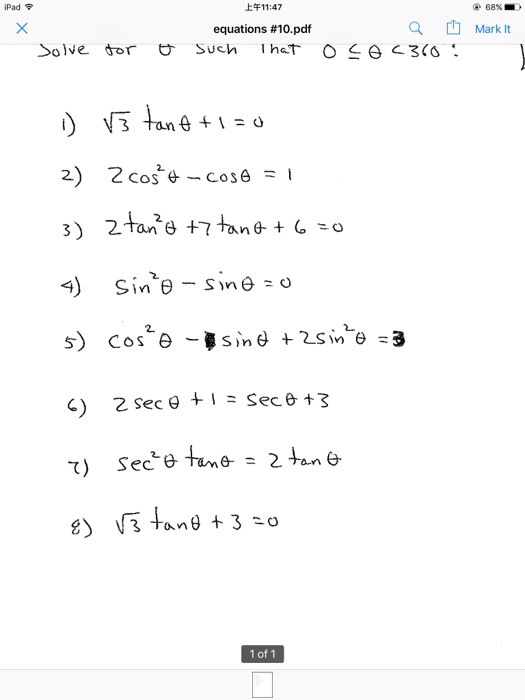 iPad 上午11:47 68%
equations #10.pdf Mark It
Solve for θ such that 0 ≤ θ < 360 :
1) √3 tanθ + 1 = 0
2) 2cos²θ - cosθ = 1
3) 2tan²θ + 7tanθ + 6 = 0
4) sin²θ - sinθ = 0
5) cos²θ - sinθ + 2sin²θ = 3
6) 2secθ + 1 = secθ + 3
7) sec²θ tanθ = 2tanθ
8) √3 tanθ + 3 = 0
1 of 1